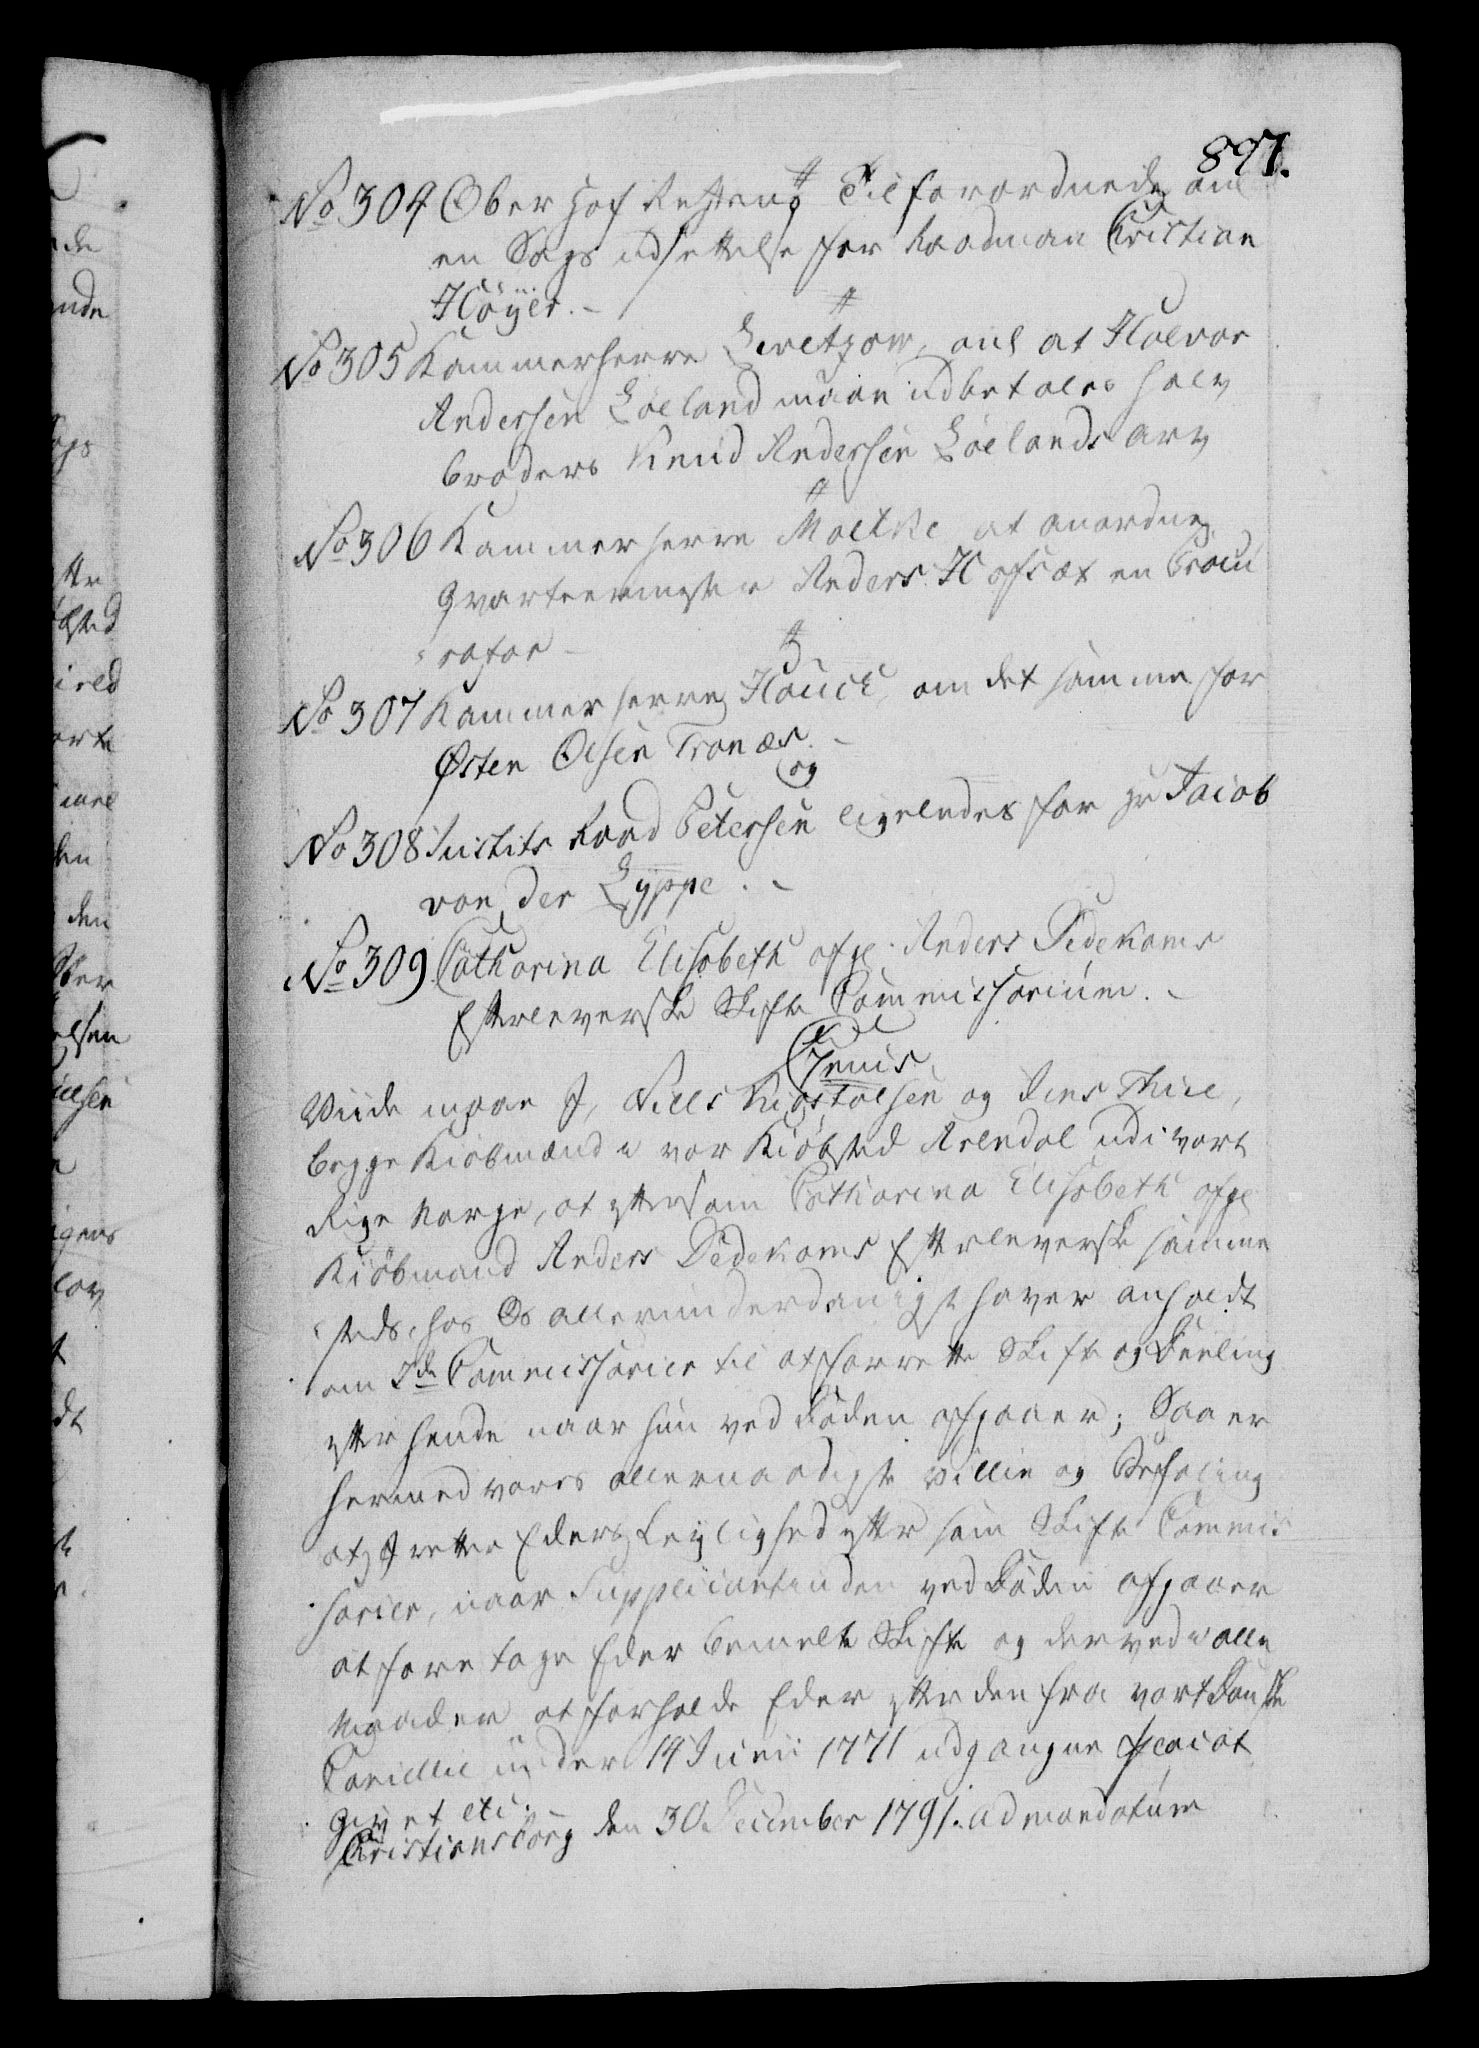 897.
No 304 Ober Hof Rettens Tilforordnede om
en Sags udsettelse for Raadman Christian
Höyer.
No 305 Kammerherre Levetzow, om at Halvor
Andersen Löeland maae udbetales halv
broders Knud Andersen Löelands arv
No 306 Kammerherre Moltke at anordne
Qvarteermester Anders Hofsæt en Procu
rator
No 307 Kammerherre Hauch om det samme for
Østen Olsen Tronæs.
No 308 Justits Raad Petersen og ligeledes for Hr Jacob
von der Lyppe.
No 309 Catharina Elisabeth afg. Anders Dedekams
Efterleverske Skifte Commissorium.
C7mus
Viide maae I, Niels Kigstolsen og Jens Thue,
begge Kiöbmænd i vor Kiöbsted Arendal udi vort
Rige Norge, at eftersom Catharina Elisabeth afg
Kiöbmand Anders Dedekams Efterleverske samme
steds, hos Os allerunderdanigst haver anholdt
om 2de Commissarier til at forrette Skifte og Deeling
efter hende naar hun ved Döden afgaaer; Saa er
hermed vores allernaadigste Villie og Befaling
at I rette Eders Leylighed efter som Skifte Commis
sarier, naar Supplicantinden ved Döden afgaaer
at foretage Eder bemelte Skifte og derved i alle
Maader at forholde Eder efter den fra vort Danske
Cancellie under 14 Junii 1771 udgangne Placat
Givet etc.
Christiansborg den 30 December 1791. ad mandatum